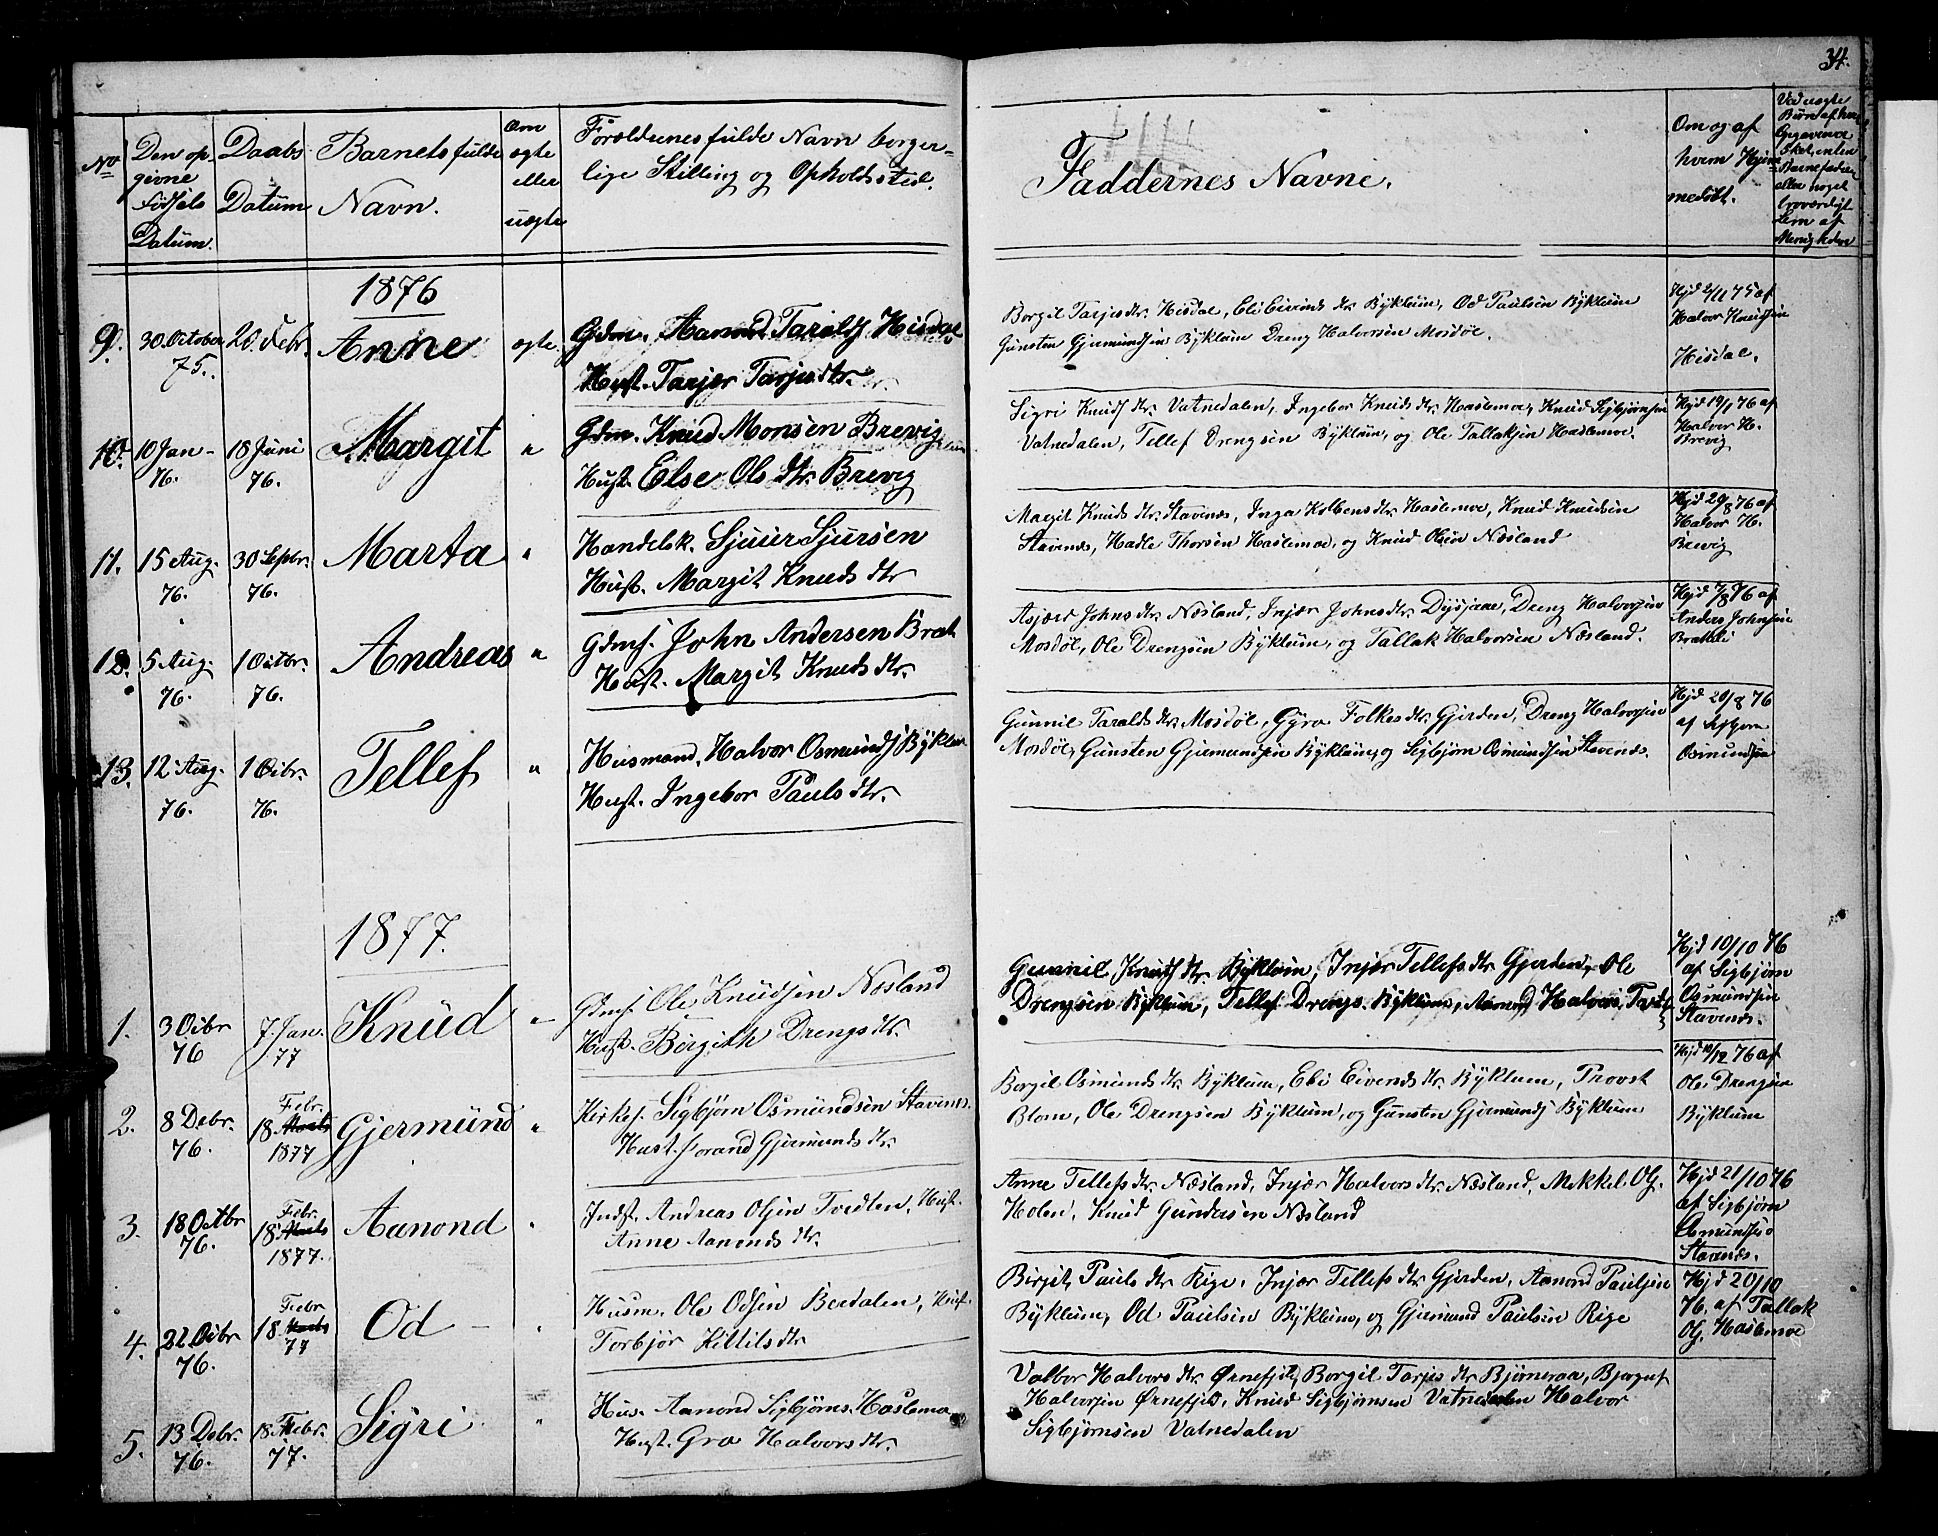 34.
No
Den op
givne
Fødsels
Datum.
Daabs
Datum
Barnets fulde
Navn.
Om
ægte
eller
uægte
Forældrenes fulde Navn borger-
lige Stilling og Opholdssted.
Faddernes Navne.
Om og af
hvem Hjem
medøbt.
1876
9. 30 October 75. 20 Febr. Anne ægte. Gdm. Aanond Taralds Hisdal
Hust. Tarjer Tarjesdtr.
Borgil Tarjesdtr. Hisdal, Eli Eivinds dtr. Bykleim, Od Paulsen Bykleim
Gunsten Gjermundsen Bykleim Dreng Halvorsen Mosdøl.
Hjd 2/11 75 af
Halvor Knudsen
Hisdal.
10. 10 Jan- 76. 18 Juni 76. Margit " Gdm. Knud Monsen Brevig
Hust. Else Ols dtr. Brevig
Sigri Knuds dtr. Vatnedalen, Ingebor Knuds dtr. Haslemoe, Knud Sigbjørnsen
Vatnedalen, Tellef Drengsen Bykleim, og Ole Tallaksen Haslemoe.
Hjd 19/1 76 af
Halvor H.
Brevig
11. 15 Aug. 76. 30 Septbr. 76. Marta " Handelsk. Sjuur Sjursen
Hust. Margit Knuds dtr
Margit Knuds dtr. Stavenæs, Inga Kolbens dtr. Haslemoe, Knud Knudsen
Stavenæs, Hadle Thorsen Haslemoe, og Knud Olsen Næsland
Hjd 29/8 76 af
Halvor H.
Brevig
12. 5 Aug. 76. 1 Octbr. 76. Andreas " Gdmf. John Andersen Brat
Hust. Margit Knuds dtr.
Asjær Johns dtr. Næsland, Injær Johns dtr. Dysjane, Dreng Halvorsen
Mosdøl, Ole Drengsen Bykleim, og Tallak Halvorsen Næsland.
Hjd 7/8 76 af
Anders Johnsen
Bratteli
13. 12 Aug. 76. 1 Octbr. 76. Tellef " Husmand. Halvor Osmunds Byklum
Hust. Ingebor Pauls dtr.
Gunnil Taralds dtr. Mosdøl, Gyro Folkes dtr. Gjerden, Dreng Halvorsen
Mosdøl, Gunsten Gjermundsen Bykleim, og Sigbjørn Osmundsen Stavenæs.
Hjd 20/8 76
af
Osmundsen
1877.
1. 3 Octbr 76 7 Jan. 77 Knud " Gdmf. Ole Knudsen Næsland
Hust. Birgith Drengs dtr.
Gunnil Knuds dtr. Bykleim, Injær Tellefs dtr Gjerden, Ole
Drengsen Bykleim, Tellef Drengs. Bykleim, Aanond Halvors. Tveit
Hjd 10/10 76
af Sigbjørn
Osmundsen
Stavenæs.
2. 8 Debr. 76. 18 Febr. 1877 Gjermund " Kirkes. Sigbjørn Osmundsen Stavenæs.
Hust. Jorand Gjermunds dtr.
Borgil Osmunds dtr. Byklum, Eli Eivends dtr. Byklum, Provst
Blom, Ole Drengsen Byklum, og Gunsten Gjermunds Byklum
Hjd 10/12 76 af
Ole Drengsen
Byklum
3. 18 Octbr 76. 18 Febr. 1877. Aanond " Indst. Andreas Olsen Tvedten, Hust.
Anne Aanonds dtr.
Anne Tellefs dtr. Næsland, Injær Halvors dtr. Næsland, Mikkel Ols.
Holen, Knud Gundersen Næsland
Hjd 21/10 76
af Sigbjørn
Osmundsen
Stavenæs.
4. 22 Octbr 76. 18 Febr 77 Od " Husm. Ole Odsen Berdalen, Hust.
Torbjør Kittils dtr
Birgit Pauls dtr Rige, Injær Tellefs dtr Gjerden, Aanond Paulsen
Byklum, Od Paulsen Byklum, og Gjermund Paulsen Rige
Hjd 20/10
76. af Tallak
Ols. Haslemoe
5. 13 Debr. 76. 18 Febr. 77. Sigri " Hus. Aanond Sigbjørns. Haslemo
Hust. Gro Halvors dtr.
Valbor Halvors dtr. Ørnefjeld, Borgil Tarjes dtr Bjørneraa, Bjorguf
Halvorsen Ørnefjeld, Knud Sigbjørnsen Vatnedalen Halvor
Sigbjørnsen Vatnedalen